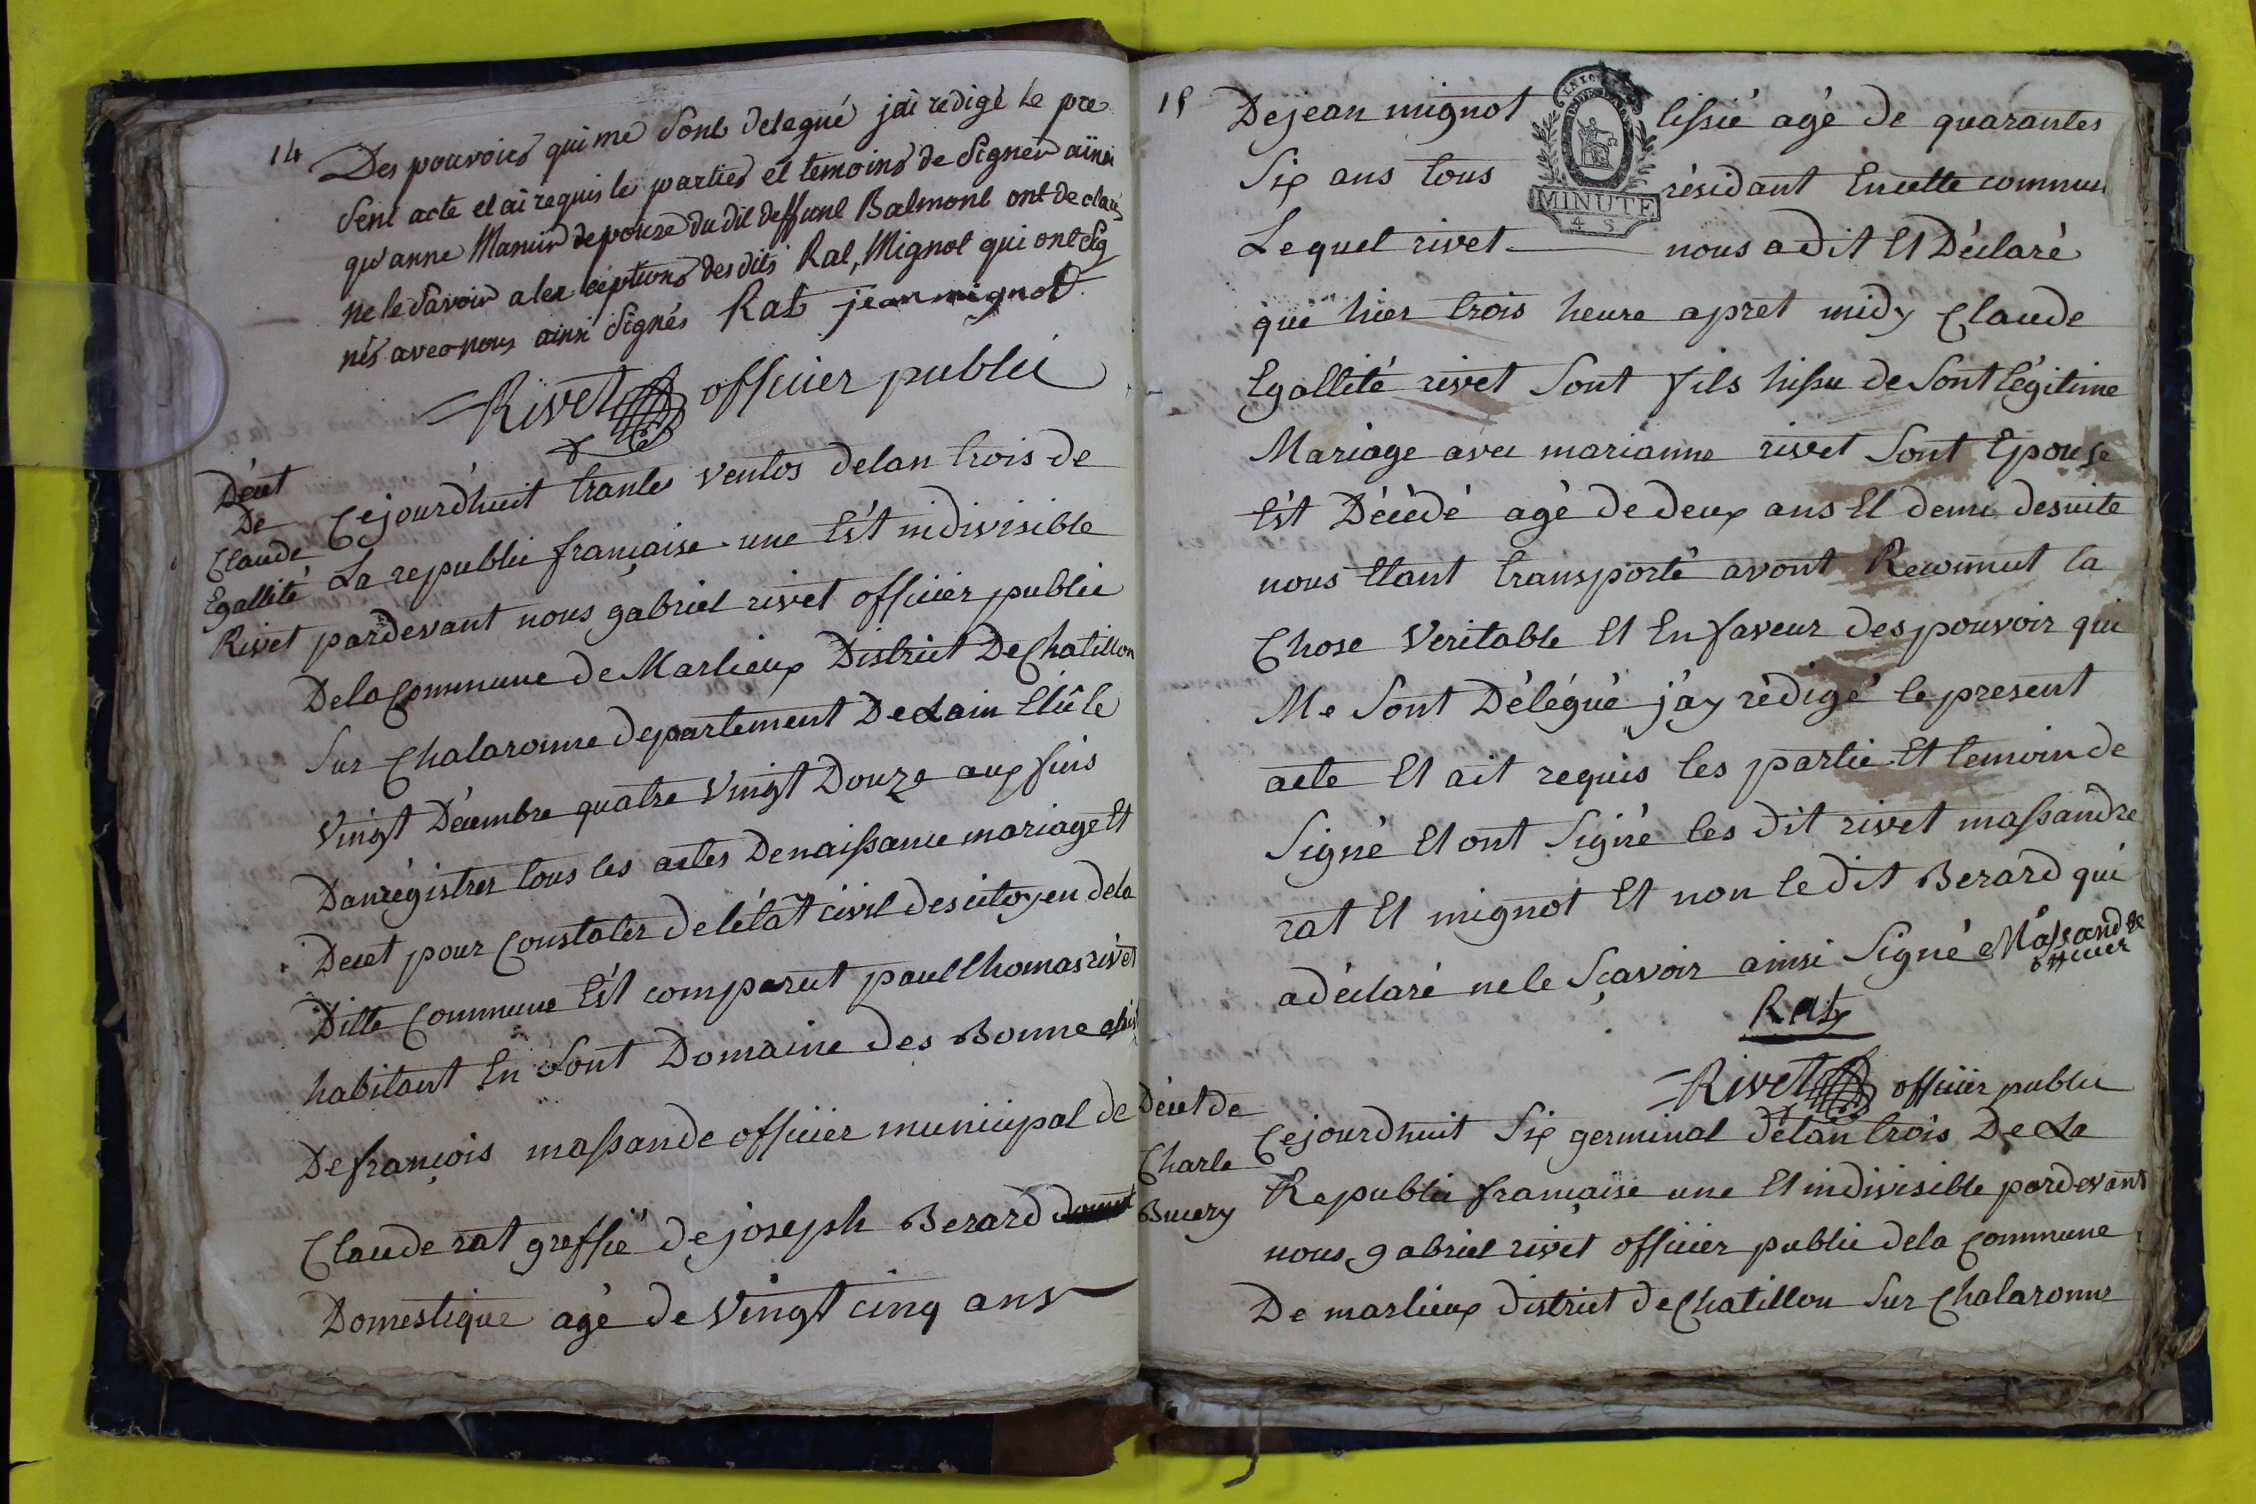 14
Des pouvoirs qui me sont delegué jai redigé le pre
sent acte et ai requis le parties et temoins de signer ainsi
qu'anne Manuir depouze du dit deffunt Balmont ont declarés
ne le savoir a lex ceptions des dits Rat, Mignot qui ont sig
nés avec nous ainsi signés Rat jean mignot
Rivet officier public
Décet
De
Claude
Egallité
Rivet
Cejourdhuit trante ventos delan trois de
La republic française une Est indivisible
pardevant nous gabriel rivet officier public
Dela Commune de Marlieux District De Chatillon
Sur Chalaronne departement De Lain Elû le
Vingt Décembre quatre Vingt Douze aux fins
Danrégistrer tous les actes Denaissance mariage Et
Decet pour Constater De létat civil des citoyen dela
Ditte Commune Est comparut paul thomas rivet
habitant En Sont Domaine des Bonne
De françois massande officier municipal de
Claude rat greffié de joseph Berard
Domestique agé de Vingt cinq ans
15
De jean mignot tissié agé de quarantes
MINUTE
4 S
Six ans tous résidant En cette commun
Le quel rivet nous a dit Et Déclaré
que hier trois heure apret midy Claude
Egallité rivet Sont fils hissu de Sont légitime
Mariage avec marianne rivet Sont Epouse
Est Décédé agé de deux ans Et demi desuite
nous Etant transporté avont Reconnut la
Chose Veritable Et En faveur des pouvoir qui
Me Sont Délégué j'ay rédigé le present
acte Et ait requis les partie Et temoin de
Signé Et ont Signé les dit rivet massandre
rat Et mignot Et non le dit Berard qui
a déclaré ne le Sçavoir ainsi Signé Massande
officier
Rat
Rivet officier public
Décet de
Charle
Buery
Cejourdhuit Six germinal délan trois De La
Republic française une Et indivisible pardevant
nous gabriel rivet officier public dela Commune
De marlieux district de Chatillon Sur Chalaronne